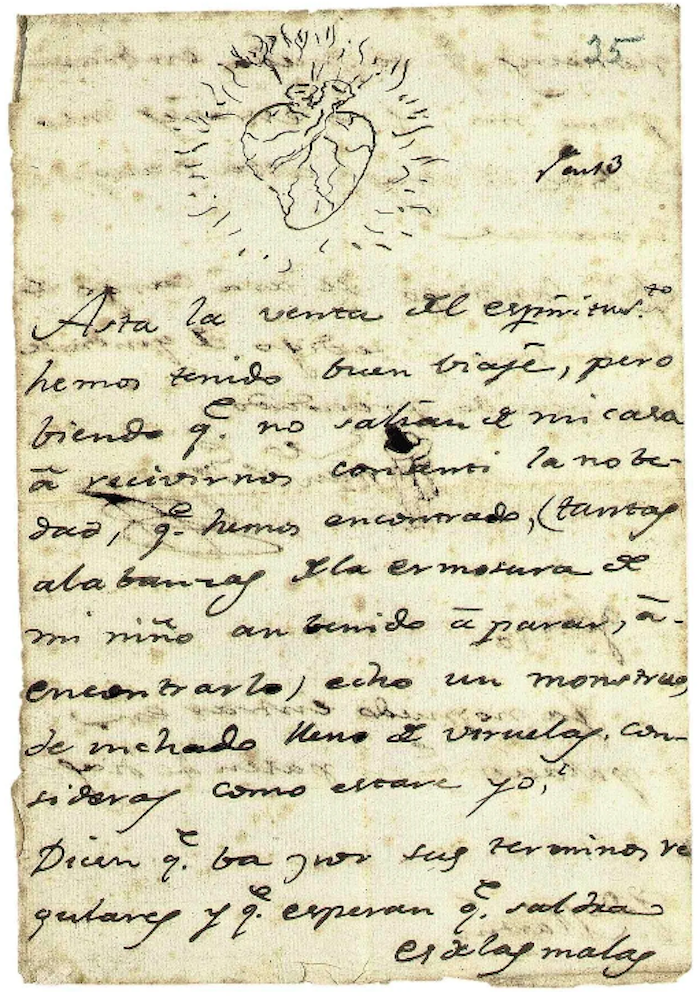 25
Asta la venta del espiritus.to
hemos tenido buen biaje, pero
biendo q.e no salian de mi casa
a recivirnos consenti la nobe-
dad, q.e hemos encontrado, (tantas
alabanzas de la ermosura de
mi niño an benido a parar, a-
encontrarlo) echo un monstruo,
de inchado lleno de viruelas. con-
sideras como estare yo,
Dicen q.e ba por sus terminos re
gulares y q.e esperan q.e saldra
es de las malas